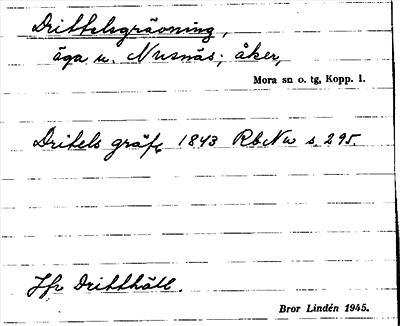 Drittelsgrävning,
äga u. Nusnäs; åker,
Mora sn o. tg, Kopp. l.
Dritels gräfn 1843 RbNw s. 295.
Jfr Dritthätt.
Bror Lindén 1945.